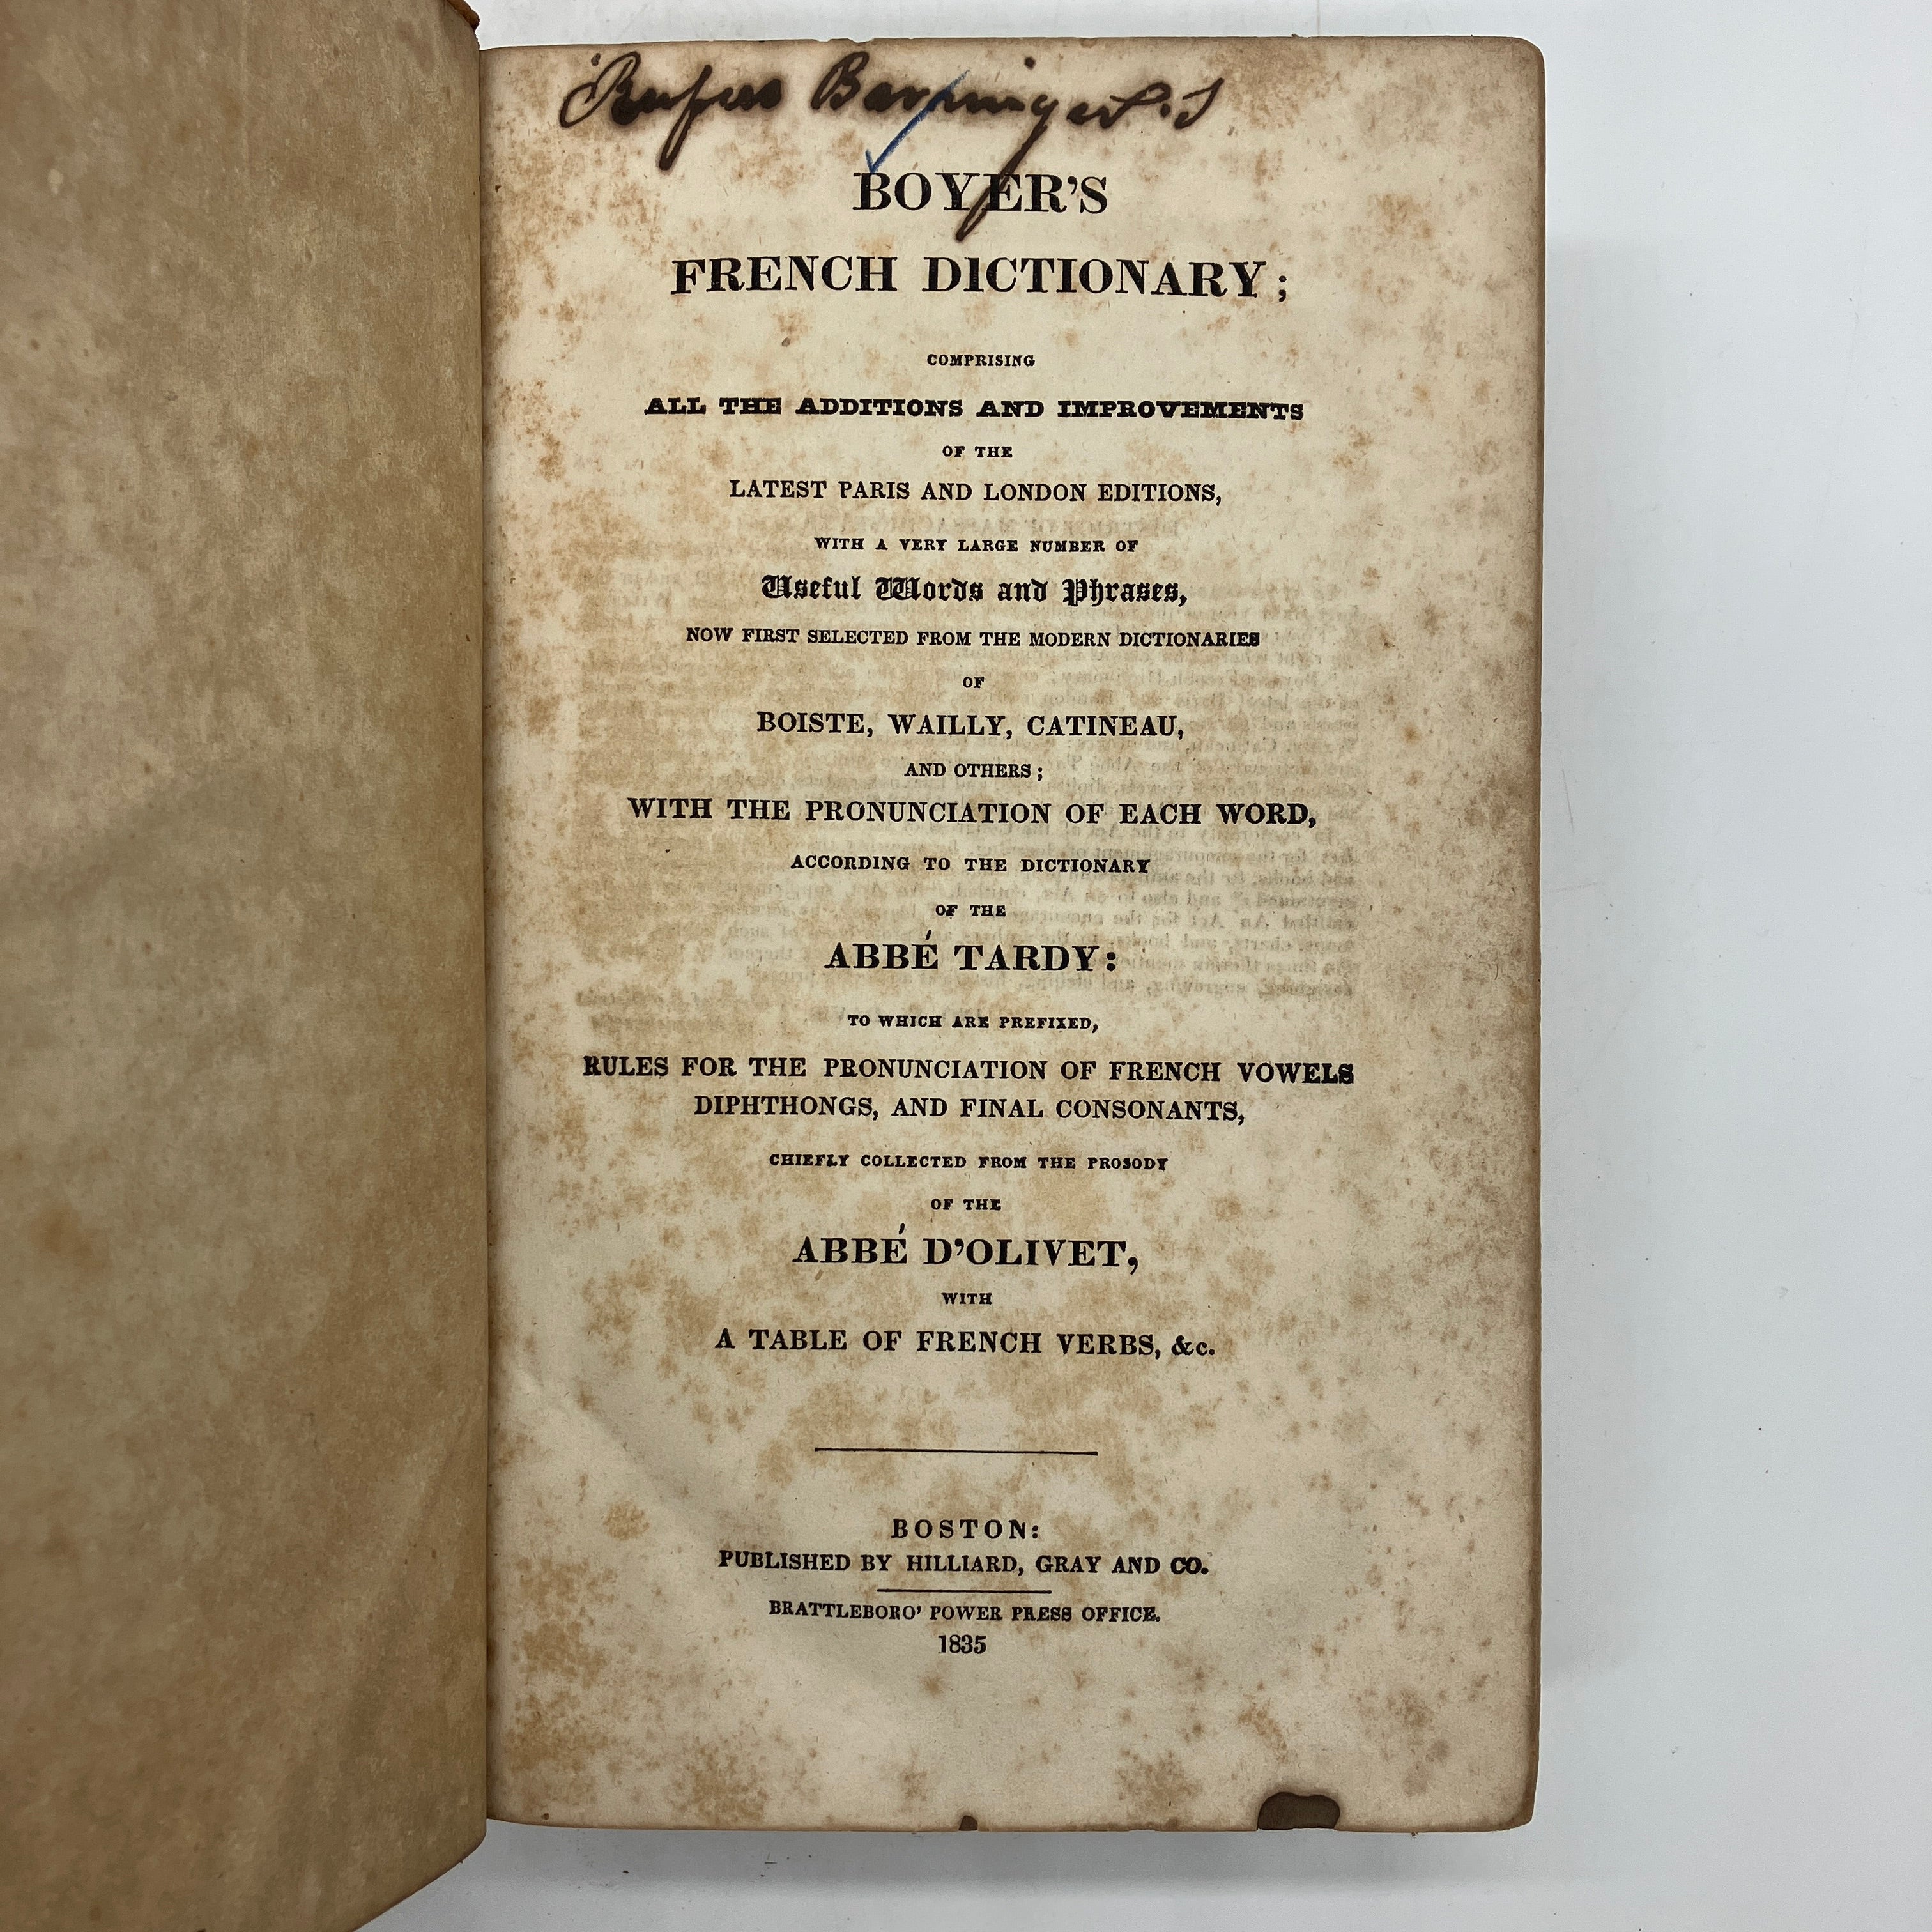 Rufus Barringer's
BOYER'S
FRENCH DICTIONARY;
COMPRISING
ALL THE ADDITIONS AND IMPROVEMENTS
OF THE
LATEST PARIS AND LONDON EDITIONS,
WITH A VERY LARGE NUMBER OF
Useful Words and Phrases,
NOW FIRST SELECTED FROM THE MODERN DICTIONARIES
OF
BOISTE, WAILLY, CATINEAU,
AND OTHERS;
WITH THE PRONUNCIATION OF EACH WORD,
ACCORDING TO THE DICTIONARY
OF THE
ABBÉ TARDY:
TO WHICH ARE PREFIXED,
RULES FOR THE PRONUNCIATION OF FRENCH VOWELS
DIPHTHONGS, AND FINAL CONSONANTS,
CHIEFLY COLLECTED FROM THE PROSODY
OF THE
ABBÉ D'OLIVET,
WITH
A TABLE OF FRENCH VERBS, &c.
BOSTON:
PUBLISHED BY HILLIARD, GRAY AND CO.
BRATTLEBORO' POWER PRESS OFFICE.
1835